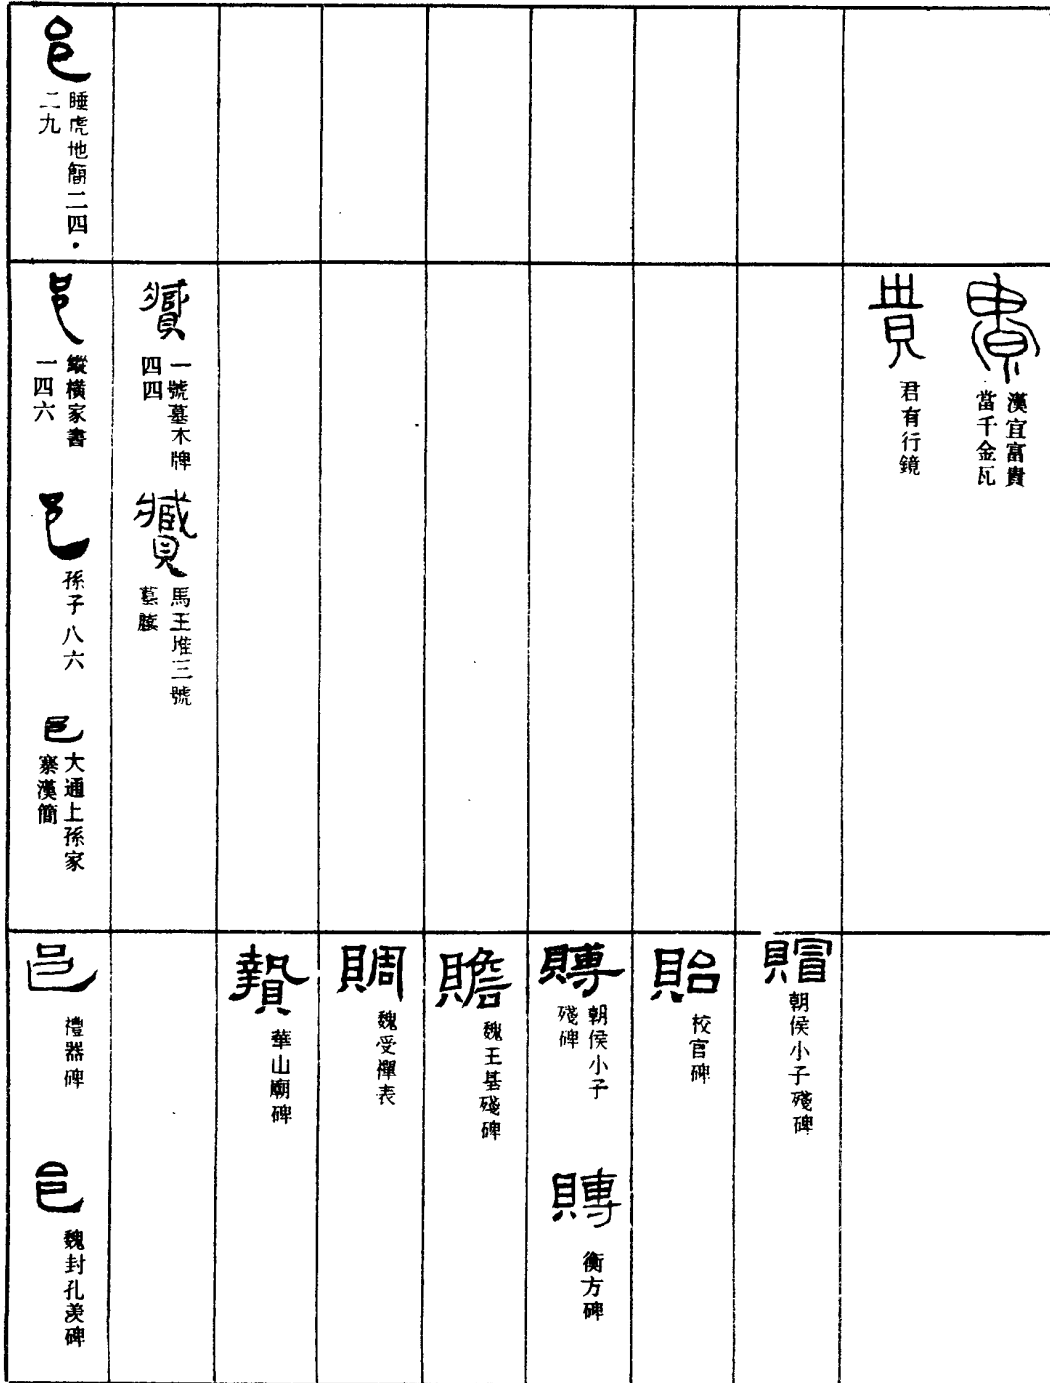 貴
漢宜富貴
當千金瓦
貴
君有行鏡
賵
朝侯小子殘碑
貽
校官碑
賻
朝侯小子
殘碑
賻
衡方碑
贍
魏王基殘碑
賙
魏受禪表
贄
華山廟碑
贓
一號墓木牌
四四
贓
馬王堆三號
墓
邑
睡虎地簡二四·
二九
邑
縱橫家書
一四六
邑
孫子八六
邑
大通上孫家
寨漢簡
邑
禮器碑
邑
魏封孔羨碑